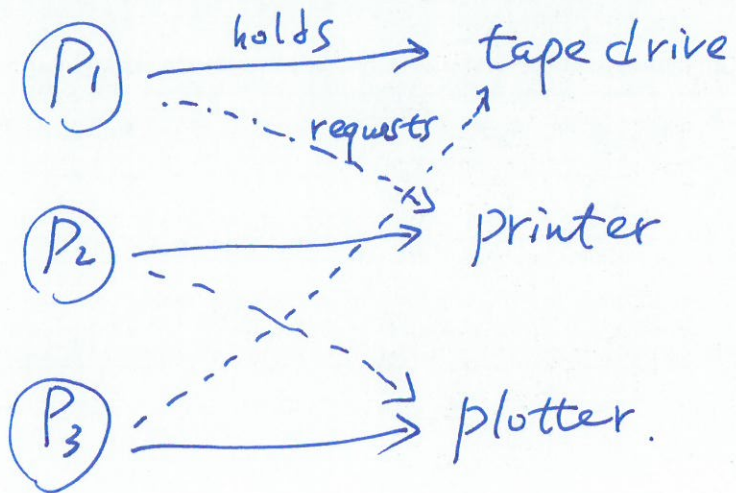 P1 holds tape drive
requests
P2 printer
P3 plotter.